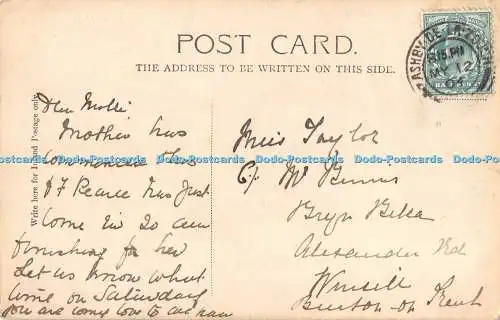 POST CARD.
THE ADDRESS TO BE WRITTEN ON THIS SIDE.
ASHBY-DE-LA-ZOUCH
MY 12
HALFPENNY
Write here for Inland Postage only.
Dear Molli
Mother has
commenced this
& F Pearce has just
come in so am
finishing for her
Let us know what
time on Saturday
you are come
Miss Taylor
C/o Mr Binns
Bryn Bella
Alexander Rd
Winsill
Burton-on-Trent
Dodo-Postcards Dodo-Postcards Dodo-Postcards Dodo-Postcards Dodo-Postcards Dodo-Postcards